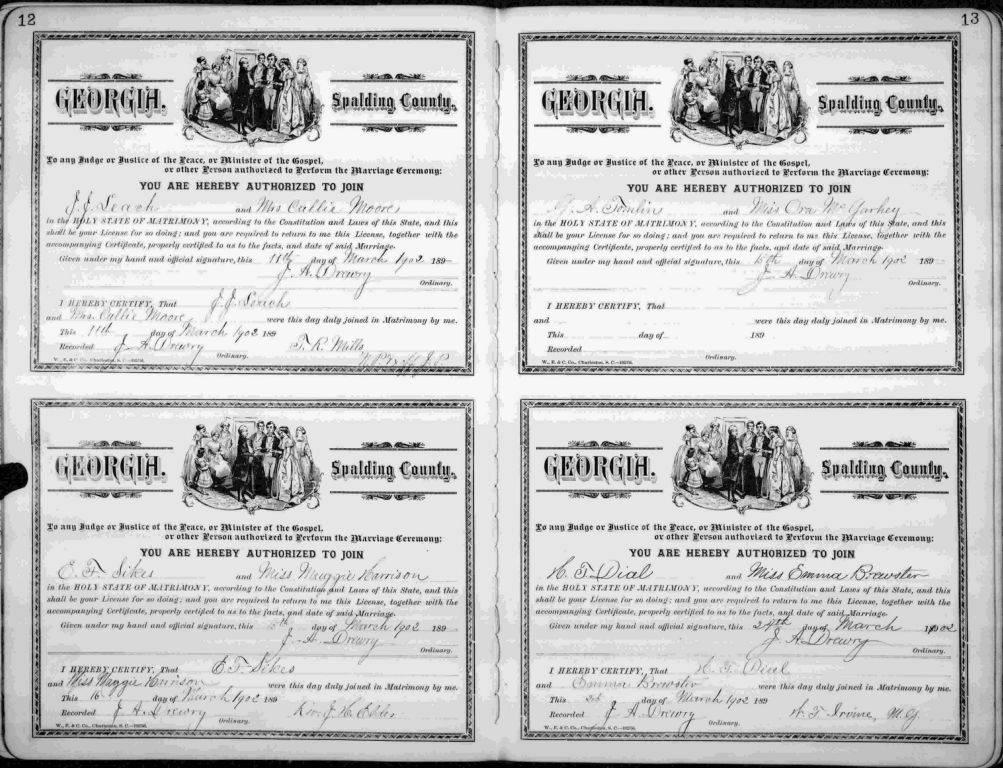 12
GEORGIA. Spalding County.
To any Judge or Justice of the Peace, or Minister of the Gospel,
or other Person authorized to Perform the Marriage Ceremony:
YOU ARE HEREBY AUTHORIZED TO JOIN
J. J. Leach and Mrs Callie Moore
in the HOLY STATE OF MATRIMONY, according to the Constitution and Laws of this State, and this
shall be your License for so doing; and you are required to return to me this License, together with the
accompanying Certificate, properly certified to as to the facts, and date of said Marriage.
Given under my hand and official signature, this 11th day of March 1902 189
J. A. Drewry
Ordinary.
I HEREBY CERTIFY, That J. J. Leach
and Mrs. Callie Moore were this day duly joined in Matrimony by me.
This 11th day of March 1902 189
Recorded J. A. Drewry T. R. Mills
Ordinary.
W., E. & C. Co., Charleston, S. C.
GEORGIA. Spalding County.
To any Judge or Justice of the Peace, or Minister of the Gospel,
or other Person authorized to Perform the Marriage Ceremony:
YOU ARE HEREBY AUTHORIZED TO JOIN
E. F. Sikes and Miss Maggie Harrison
in the HOLY STATE OF MATRIMONY, according to the Constitution and Laws of this State, and this
shall be your License for so doing; and you are required to return to me this License, together with the
accompanying Certificate, properly certified to as to the facts, and date of said Marriage.
Given under my hand and official signature, this day of March 1902 189
J. A. Drewry
Ordinary.
I HEREBY CERTIFY, That E. F. Sikes
and Miss Maggie Harrison were this day duly joined in Matrimony by me.
This 16 day of March 1902 189
Recorded J. A. Drewry J. H.
Ordinary.
W., E. & C. Co., Charleston, S. C.
13
GEORGIA. Spalding County.
To any Judge or Justice of the Peace, or Minister of the Gospel,
or other Person authorized to Perform the Marriage Ceremony:
YOU ARE HEREBY AUTHORIZED TO JOIN
A. Tomlin and Miss Ora
in the HOLY STATE OF MATRIMONY, according to the Constitution and Laws of this State, and this
shall be your License for so doing; and you are required to return to me this License, together with the
accompanying Certificate, properly certified to as to the facts, and date of said Marriage.
Given under my hand and official signature, this 15th day of March 1902 189
J. A. Drewry
Ordinary.
I HEREBY CERTIFY, That
and were this day duly joined in Matrimony by me.
This day of 189
Recorded
Ordinary.
W., E. & C. Co., Charleston, S. C.
GEORGIA. Spalding County.
To any Judge or Justice of the Peace, or Minister of the Gospel,
or other Person authorized to Perform the Marriage Ceremony:
YOU ARE HEREBY AUTHORIZED TO JOIN
H. T. Dial and Miss Emma Brewster
in the HOLY STATE OF MATRIMONY, according to the Constitution and Laws of this State, and this
shall be your License for so doing; and you are required to return to me this License, together with the
accompanying Certificate, properly certified to as to the facts, and date of said Marriage.
Given under my hand and official signature, this 29th day of March 1902
J. A. Drewry
Ordinary.
I HEREBY CERTIFY, That H. T. Dial
and Emma Brewster were this day duly joined in Matrimony by me.
This day of March 1902 189
Recorded J. A. Drewry Irvine, M.G.
Ordinary.
W., E. & C. Co., Charleston, S. C.